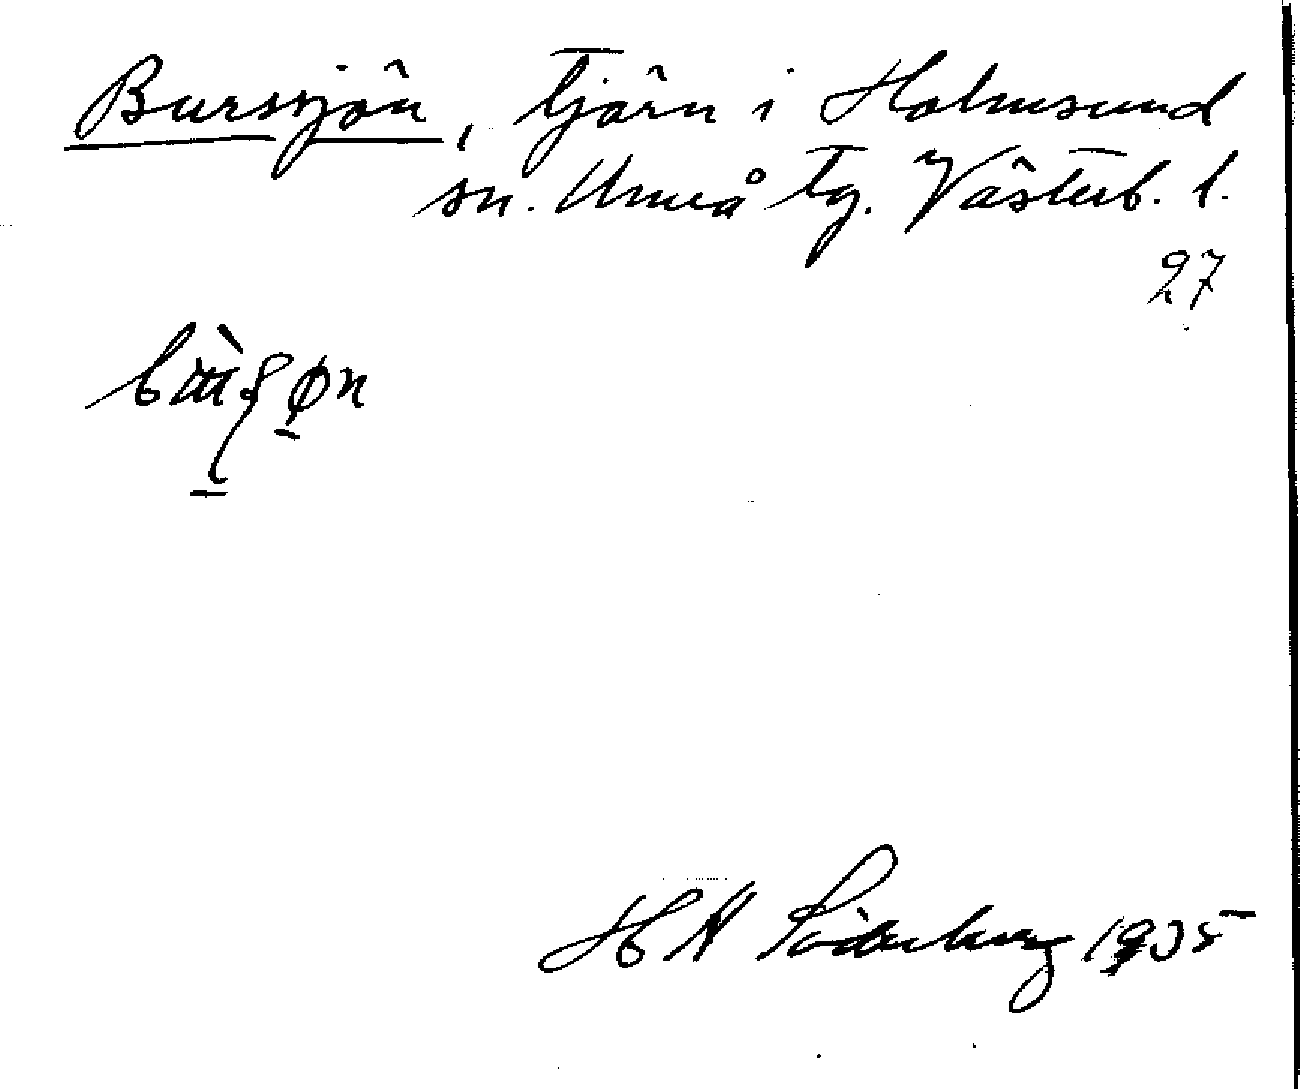 Burssjön, Tjärn i Holmsund
sn. Umeå tg. Västerb. l.
27
H Söderberg 1935